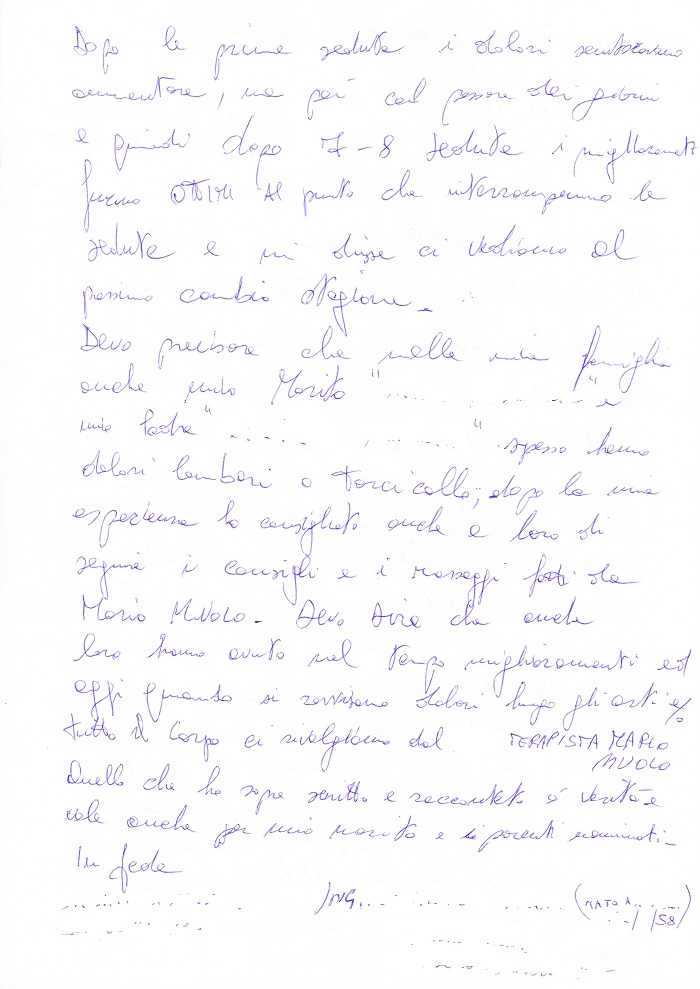 Dopo le prime sedute i dolori sembravano
aumentare, ma poi col passare dei giorni
e quindi dopo 7-8 sedute i miglioramenti
furono OTTIMI Al punto che interrompemmo le
sedute e mi disse ci vediamo al
prossimo cambio stagione_
Devo precisare che nella mia famiglia
anche mio Marito "............" e
mia "..... ......" spesso hanno
dolori lombari o torcicollo; dopo la mia
esperienza ho consigliato anche a loro di
seguire i consigli e i massaggi fatti da
Mario MUOLO_ Devo dire che anche
loro hanno avuto nel tempo miglioramenti ed
oggi quando si ravvisano dolori lungo gli arti o/o
tutto il corpo ci rivolgiamo dal TERAPISTA MARIO
MUOLO
Quello che ho sopra scritto e raccontato é veritá e
vale anche per mio marito e i parenti nominati_
In fede
ING. ............ (NATO A........
../ /58)